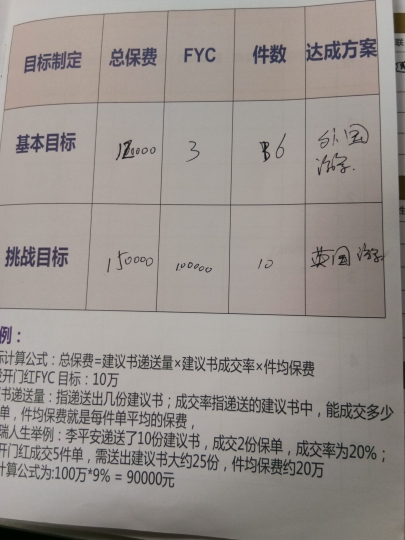 目标制定 总保费 FYC 件数 达成方案
基本目标 0000 3 6 外国
游学.
挑战目标 150000 100000 10 英国游学
例：
标计算公式：总保费=建议书递送量×建议书成交率×件均保费
开门红FYC 目标：10万
书递送量：指递送出几份建议书；成交率指递送的建议书中，能成交多少
单，件均保费就是每件单平均的保费，
瑞人生举例：李平安递送了10份建议书，成交2份保单，成交率为20%；
开门红成交5件单，需送出建议书大约25份，件均保费约20万
计算公式为:100万*9% = 90000元